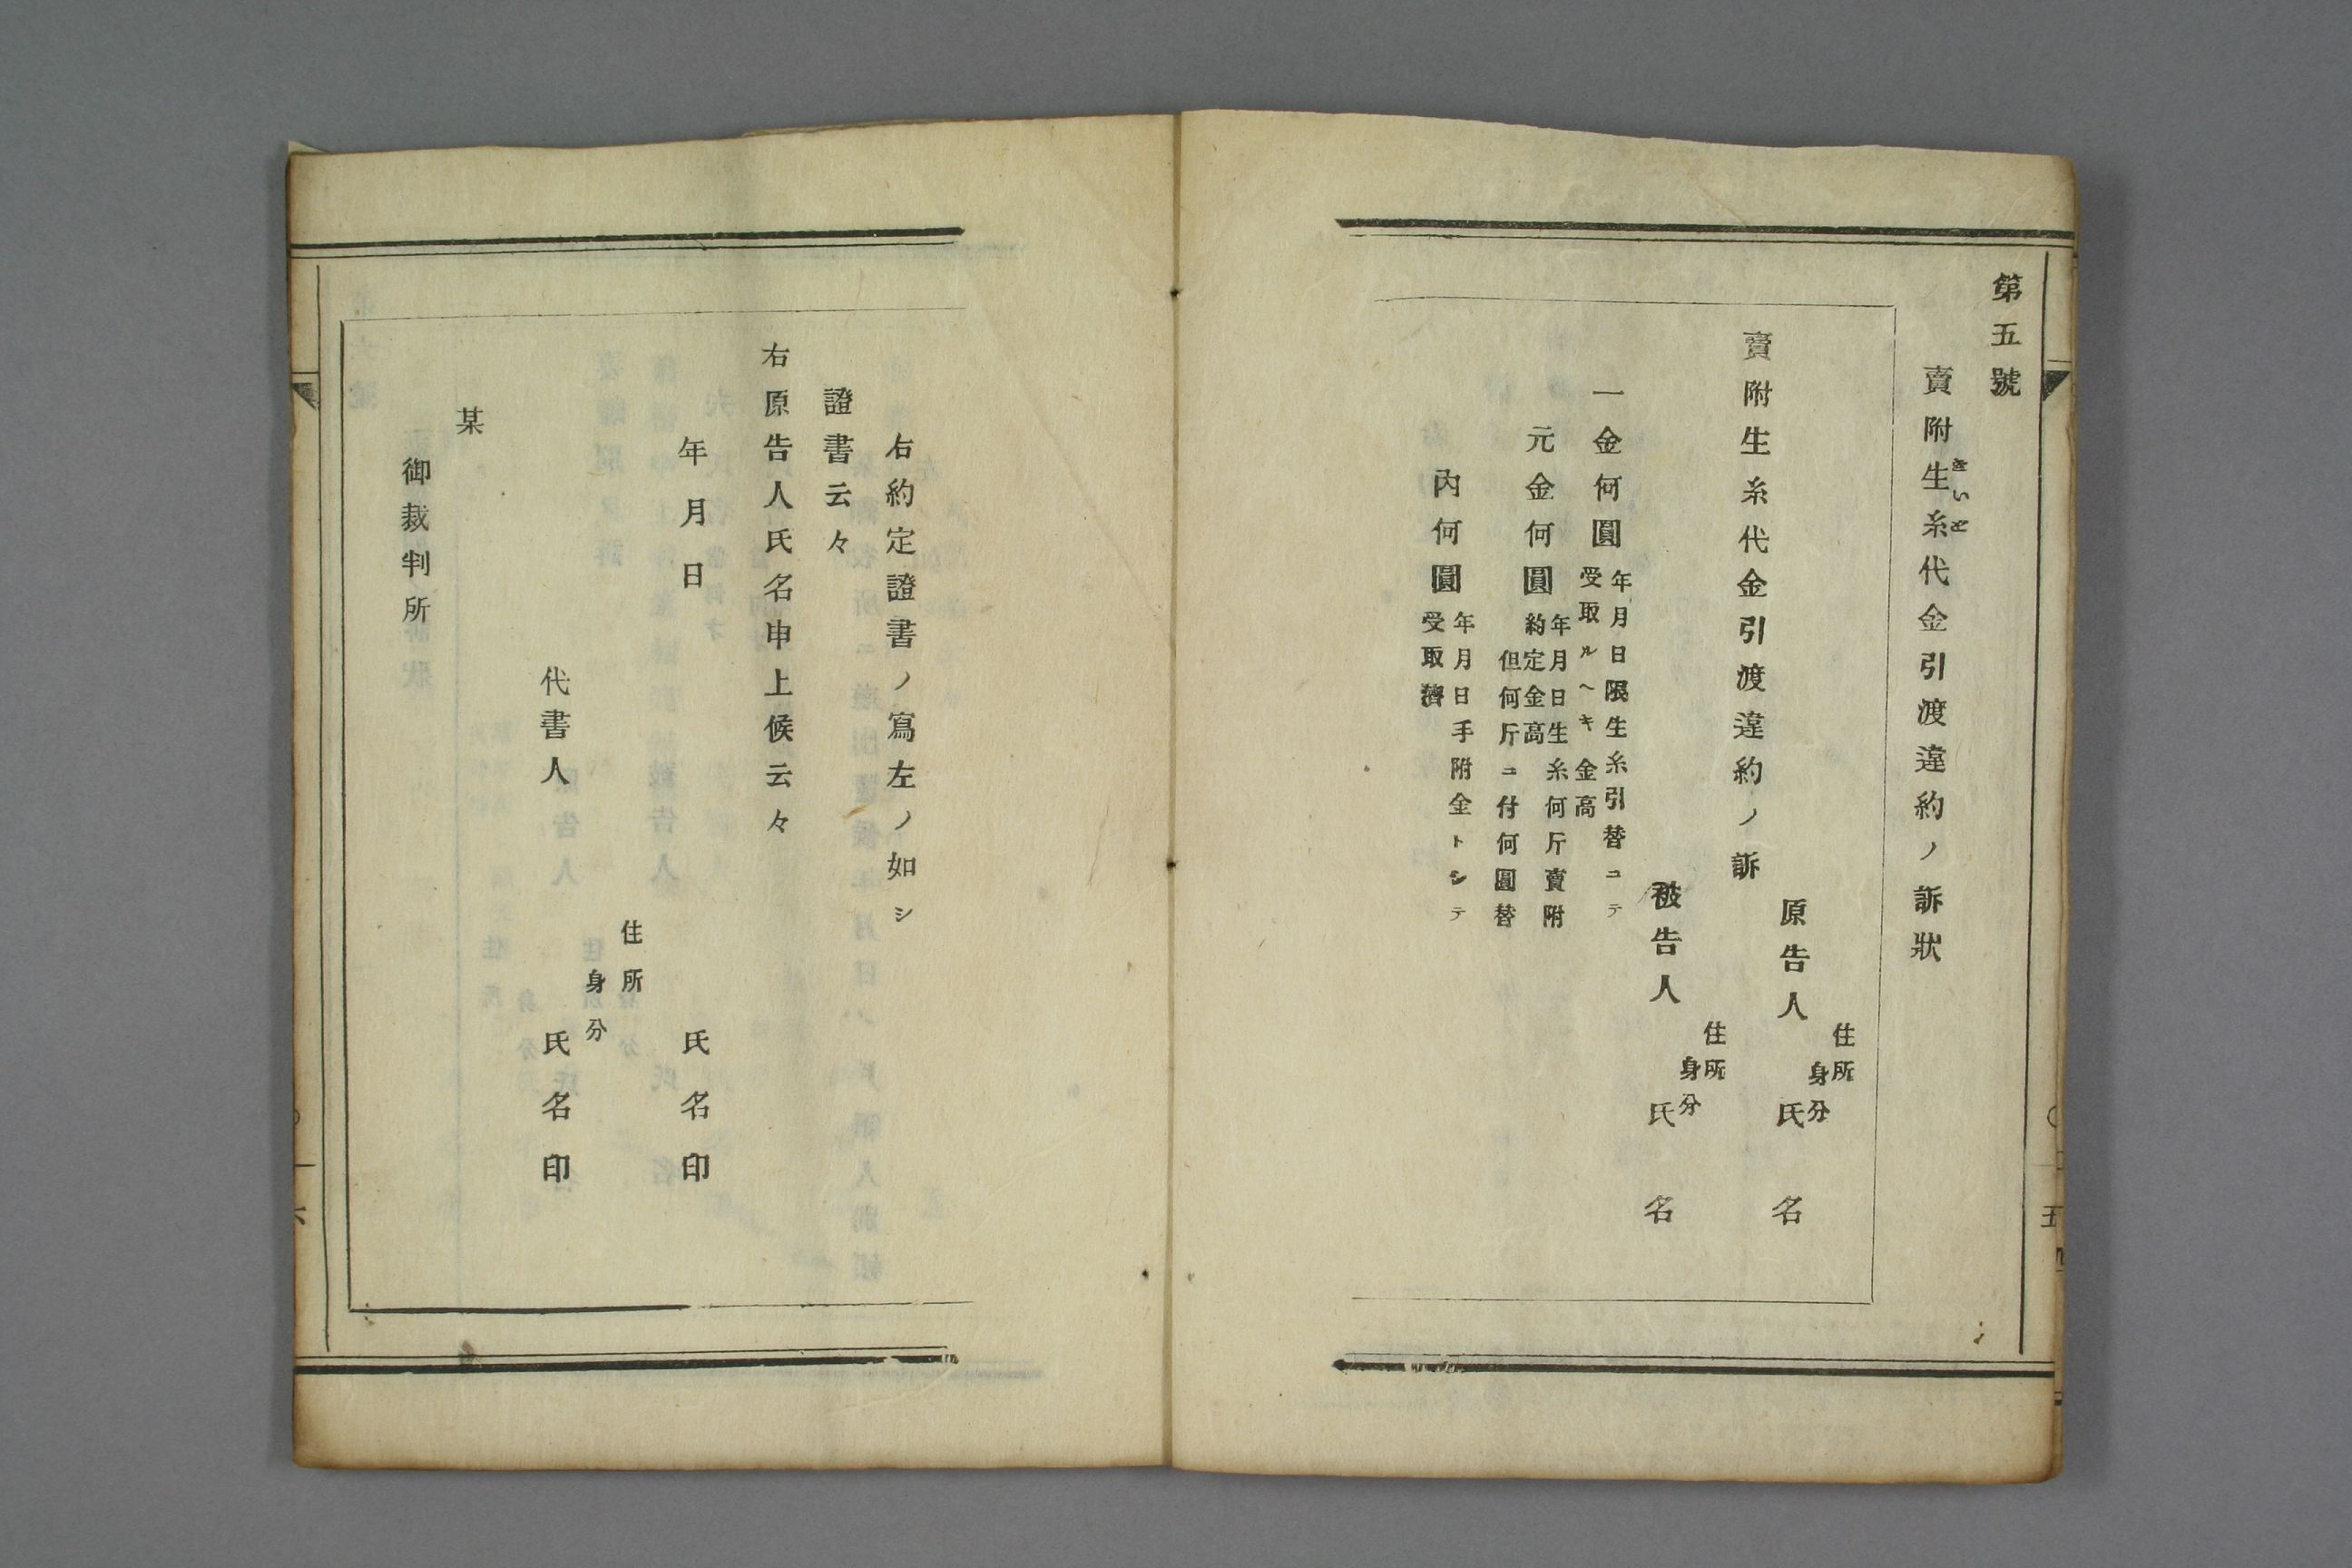 第五號
賣附生糸代金引渡違約ノ訴狀
きいと
原告人
住所
身分
氏名
賣附生糸代金引渡違約ノ訴
被告人
住所
身分
氏名
一金何圓
年月日限生糸引替ニテ
受取ルヘキ金高
元金何圓
年月日生糸何斤賣附
約定金高
但何斤ニ付何圓替
内何圓
年月日手附金トシテ
受取濟
右約定證書ノ寫左ノ如シ
證書云々
右原告人氏名申上候云々
年月日
氏名印
住所
身分
代書人
氏名印
某
御裁判所
五
六